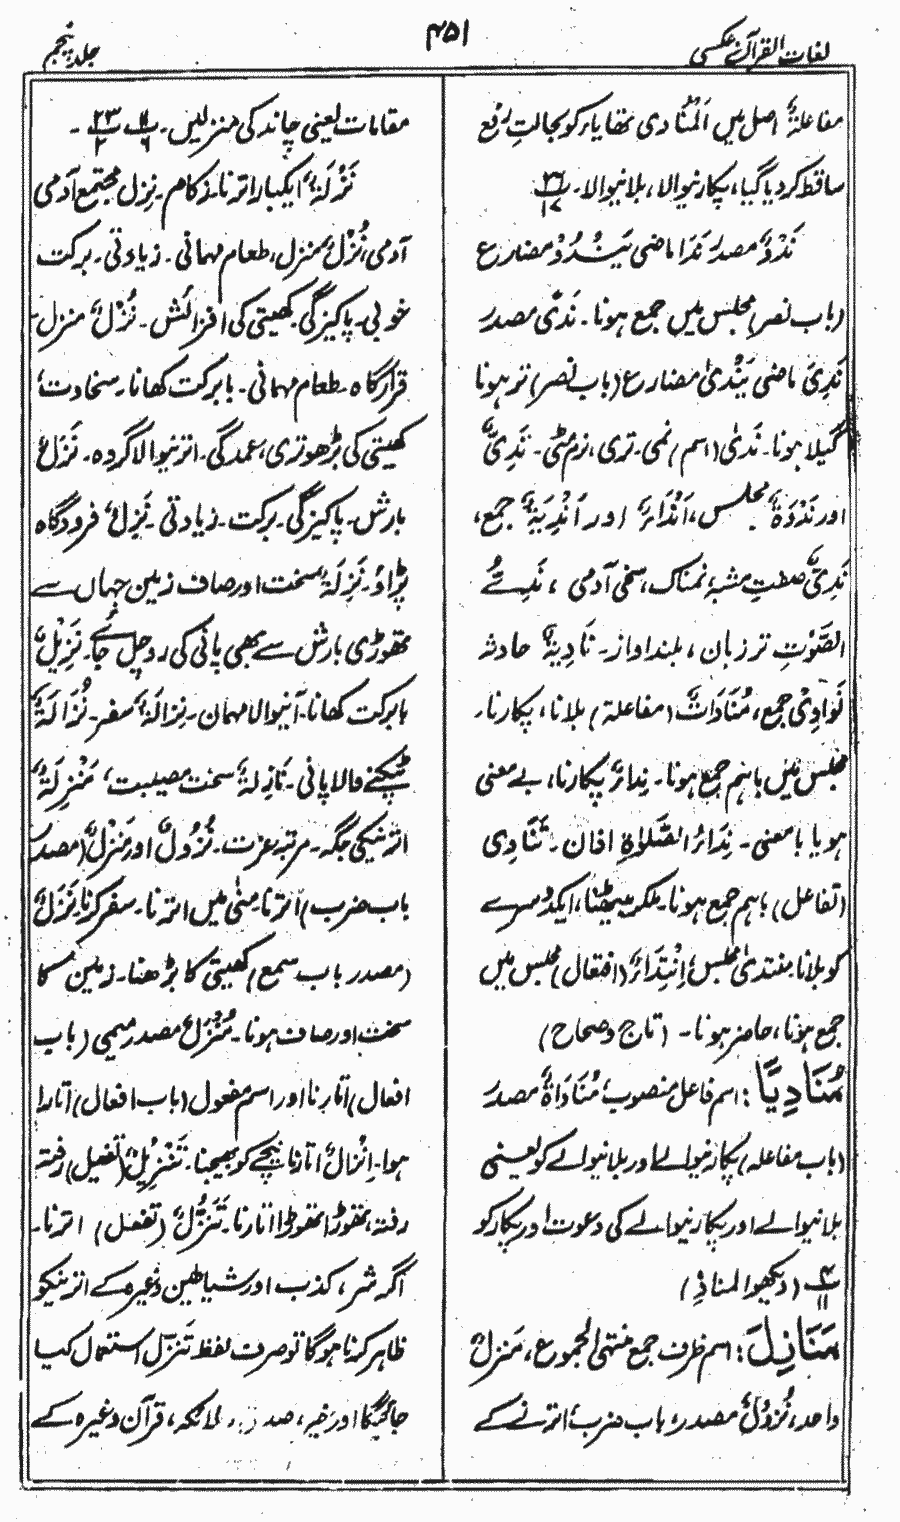 لغات القرآن عکسی
۴۵۱
جلد پنجم
مفاعلۃٌ اصل میں اَلْمُنَادی تھا یاء کو بحالتِ رفع
ساقط کر دیا گیا، پکارنیوالا، بلانیوالا۔ پ ۲۶ ۱۷
نَدْوٌ مصدر نَدَا ماضی یَنْدُوْ مضارع
(باب نصر) مجلس میں جمع ہونا۔ نَدًی مصدر
نَدِیَ ماضی یَنْدٰی مضارع (باب نصر) تر ہونا
گیلا ہونا۔ نَدٰی (اسم) نمی۔ تری، نرم مٹی۔ نَدِیٌّ
اور نَدْوَۃٌ مجلس، اَنْدَاءٌ اور اَنْدِیَۃٌ جمع،
نَدِیٌّ صفتِ مشبہ، نمناک، سخی آدمی، نَدِیُّ
الصَّوْتِ تر زبان، بلند اواز۔ نَادِیَۃٌ حادثہ
نَوَادِیْ جمع، مُنَادَاتٌ (مفاعلۃ) بلانا، پکارنا۔
مجلس میں باہم جمع ہونا۔ نِداءٌ پکارنا، بے معنی
ہو یا بامعنی۔ نِدَاءُ الصَّلٰوۃِ اذان۔ تَنَادِی
(تفاعل) باہم جمع ہونا۔ ملکر بیٹھنا، ایکدوسرے
کو بلانا منتدیٰ مجلس، اِنْتِدَاءٌ (افتعال) مجلس میں
جمع ہونا، حاضر ہونا۔ (تاج و صحاح)
مُنَادِیًا: اسم فاعل منصوب، مُنَادَاۃٌ مصدر
(باب مفاعلہ) پکارنیوالے اور بلانیوالے کو یعنی
بلانیوالے اور پکارنیوالے کی دعوت اور پکار کو
پ ۴ ۱۱ (دیکھو المنادِ)
مَنَازِلَ: اسم ظرف جمع منتہی الجموع، مَنزِلٌ
واحد، نُزُوْلٌ مصدر، باب ضرب، اترنے کے
مقامات یعنی چاند کی منزلیں۔ پ ۱۱ ۶، پ ۲۳ ۲۔
نَزْلَۃٌ ایکبار اترنا۔ زکام۔ نِزل مجتمع آدمی
آدمی، نُزْلٌ منزل، طعام مہمانی۔ زیادتی۔ برکت
خوبی۔ پاکیزگی۔ کھیتی کی افزائش۔ نُزُلٌ منزل۔
قرارگاہ۔ طعام مہمانی۔ بابرکت کھانا۔ سخاوت،
کھیتی کی بڑھوتری، عمدگی۔ اترنیوالا گروہ۔ نَزَلٌ
بارش۔ پاکیزگی۔ برکت۔ زیادتی۔ نَزِلٌ فرودگاہ
پڑاؤ۔ نَزِلَۃٌ سخت اور صاف زمین جہاں سے
تھوڑی بارش سے بھی پانی کی رو چل جائے۔ نَزِیْلٌ
بابرکت کھانا۔ آنیوالا مہمان۔ نِزالَۃٌ سفر۔ نُزَالَۃٌ
ٹپکنے والا پانی۔ نَازِلۃٌ سخت مصیبت، مَنْزِلَۃٌ
اترنیکی جگہ۔ مرتبہ عزت۔ نُزُولٌ اور مَنْزَلٌ (مصدر
باب ضرب) اترنا منیٰ میں اترنا۔ سفر کرنا نَزَلٌ
(مصدر باب سمع) کھیتی کا بڑھنا۔ زمین کا
سخت اور صاف ہونا۔ مُنْزَلٌ مصدر میمی (باب
افعال) اتارنا اور اسم مفعول (باب افعال) اتارا
ہوا۔ اِنْزَالٌ اتارنا نیچے کو بھیجنا۔ تَنْزِیْلٌ (تفعیل) رفتہ
رفتہ، تھوڑا تھوڑا اتارنا۔ تَنَزُّلٌ (تفعل) اترنا۔
اگر شر، کذب اور شیاطین وغیرہ کے اترنیکو
ظاہر کرنا ہوگا تو صرف لفظ تَنَزّل استعمال کیا
جائیگا اور خیر، صدق، ملائکہ، قرآن وغیرہ کے